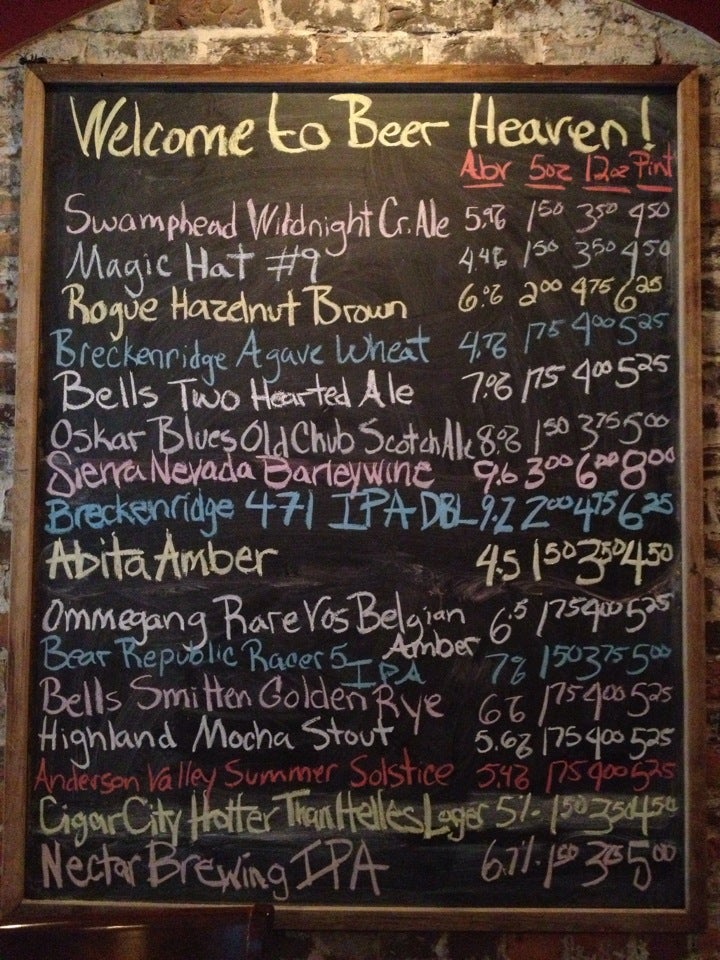 Welcome to Beer Heaven!
Abv 5oz 12oz Pint
Swamphead Wildnight Cr. Ale 5.9% 1.50 3.50 4.50
Magic Hat #9 4.4% 1.50 3.50 4.50
Rogue Hazelnut Brown 6.% 2.00 4.75 6.25
Breckenridge Agave Wheat 4.7% 1.75 4.00 5.25
Bells Two Hearted Ale 7.% 1.75 4.00 5.25
Oskar Blues Old Chub Scotch Ale 8.% 1.50 3.75 5.00
Sierra Nevada Barleywine 9.6 3.00 6.00 8.00
Breckenridge 471 IPA DBL 9.2 2.00 4.75 6.25
Abita Amber 4.5 1.50 3.50 4.50
Ommegang Rare Vos Belgian Amber 6.5 1.75 4.00 5.25
Bear Republic Racer 5 IPA 7% 1.50 3.75 5.00
Bells Smitten Golden Rye 6% 1.75 4.00 5.25
Highland Mocha Stout 5.6% 1.75 4.00 5.25
Anderson Valley Summer Solstice 5.4% 1.75 4.00 5.25
Cigar City Hotter Than Helles Lager 5% 1.50 3.50 4.50
Nectar Brewing IPA 6.7% 1.50 3.75 5.00